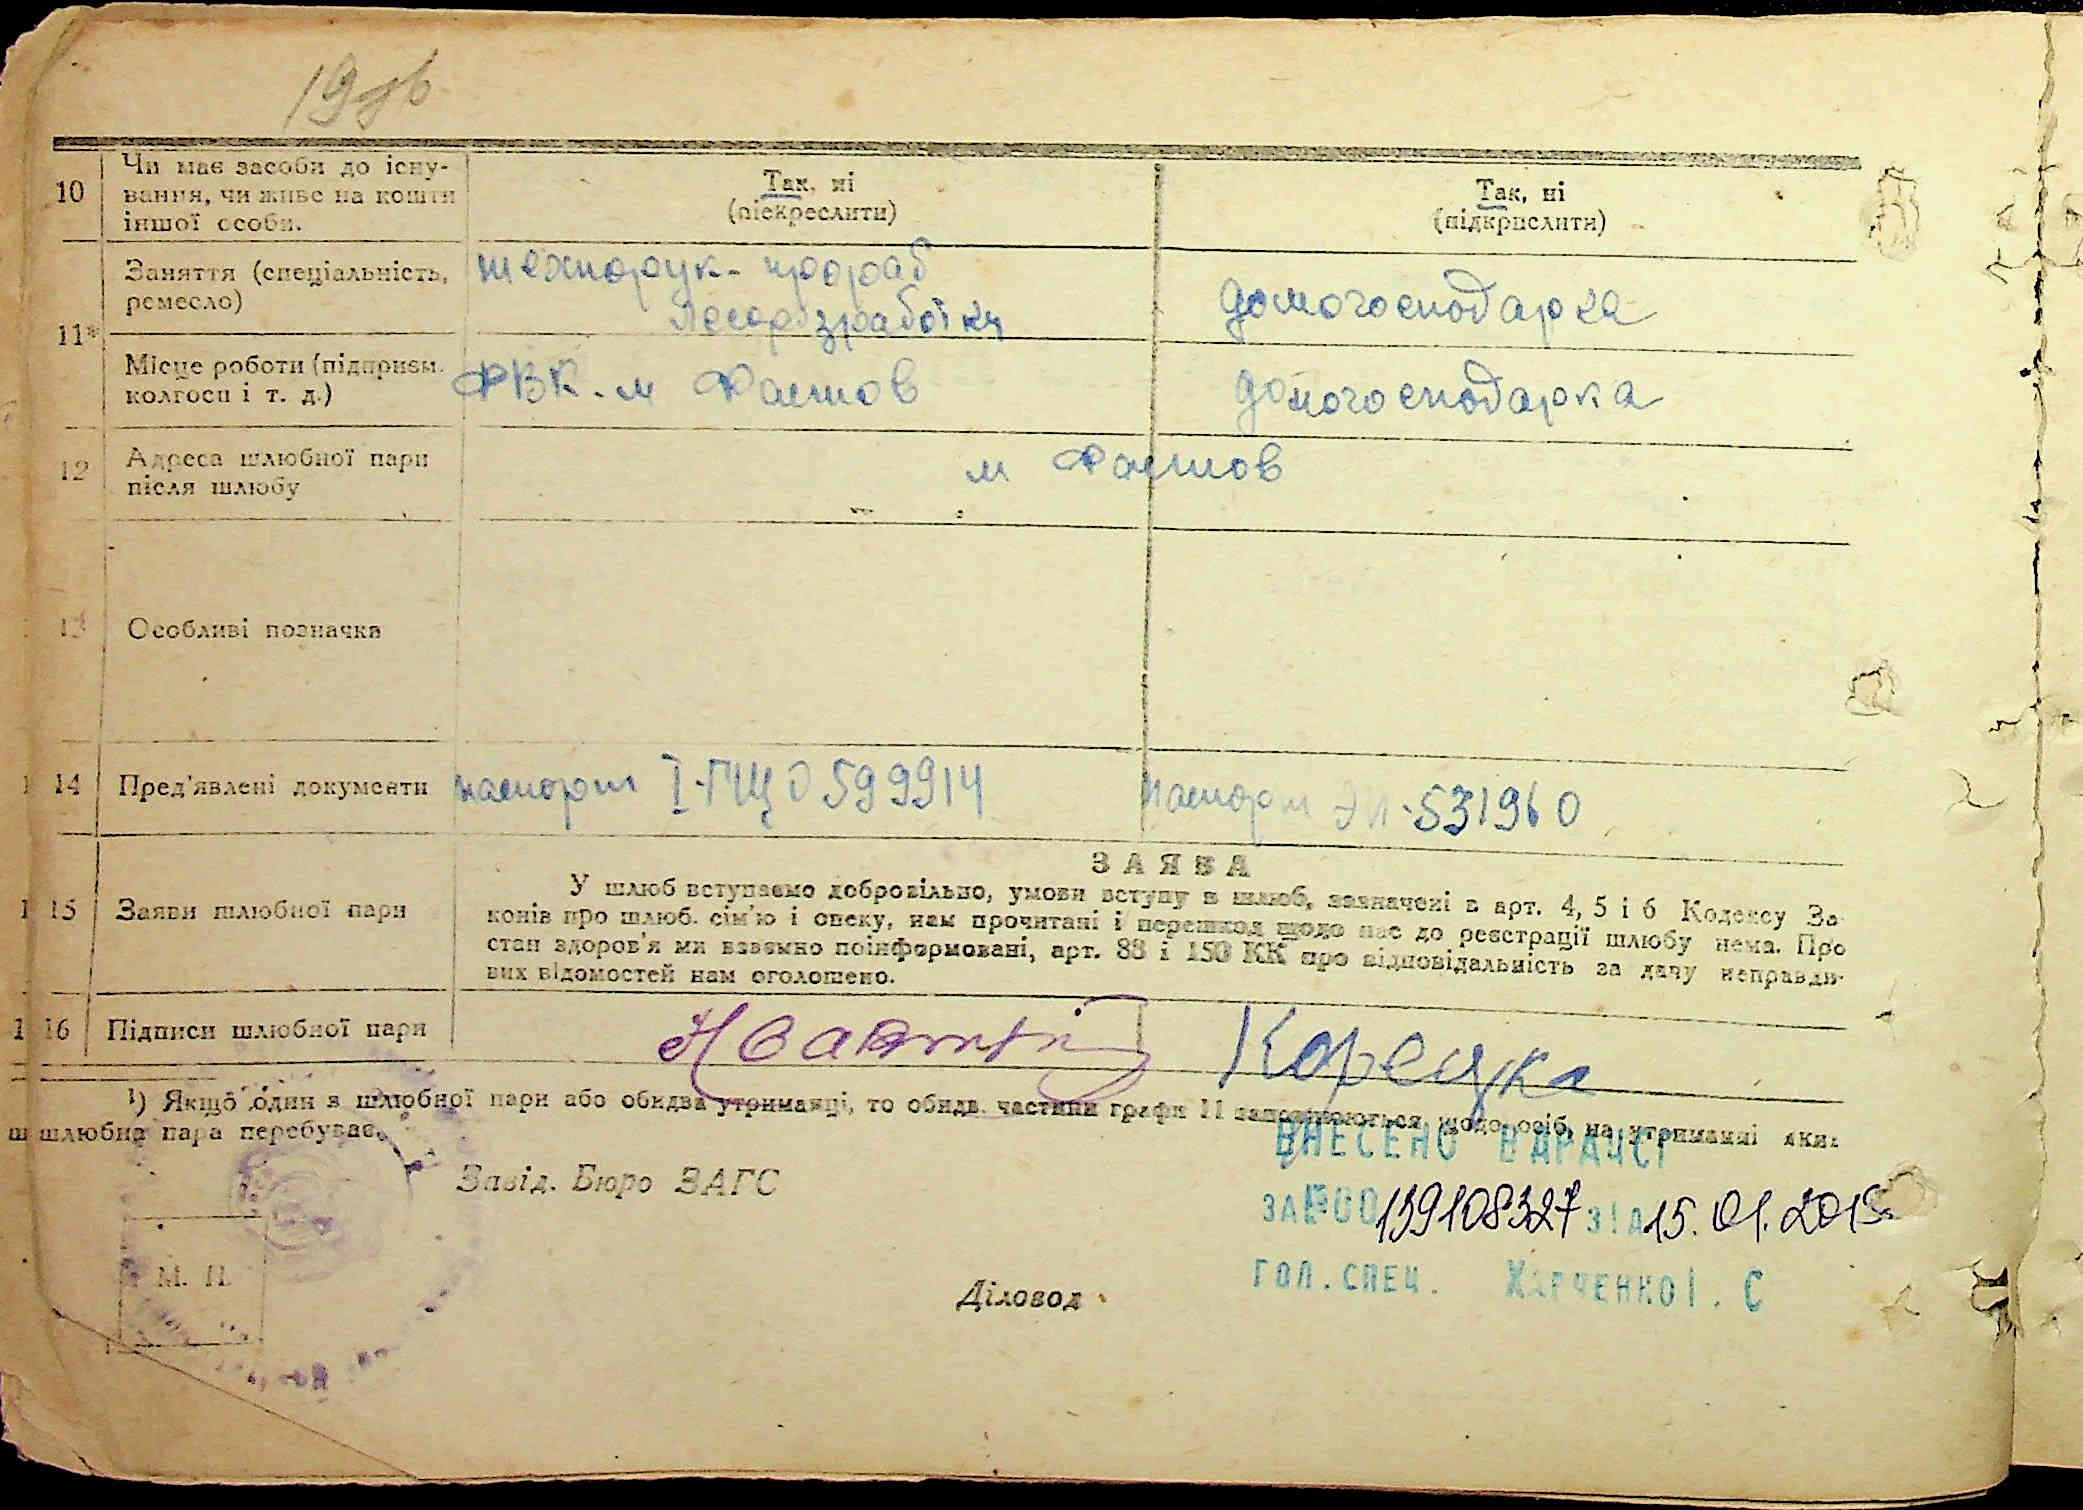 19зв
10 Чи має засоби до існу-
вання, чи живе на кошти
іншої особи.
Так, ні
(піекреслити)
Так, ні
(підкрислити)
11
Заняття (спеціальність,
ремесло)
технорук-прораб
домогосподарка
Місце роботи (підприєм.
колгосп і т. д.)
ФВК. м Фастов
домогосподарка
12 Адреса шлюбної пари
після шлюбу
м Фастов
13 Особливі позначка
14 Пред'явлені документи
паспорт I-ГЩ 0599914
паспорт ЭЛ-531960
ЗАЯВА
15 Заяви шлюбної пари
У шлюб вступаємо добровільно, умови вступу в шлюб, зазначені в арт. 4, 5 і 6 Кодексу За-
конів про шлюб. сім'ю і опеку, нам прочитані і перешкод щодо нас до реєстрації шлюбу нема. Про
стан здоров'я ми взаємно поінформовані, арт. 88 і 150 КК про відповідальність за дачу неправди-
вих відомостей нам оголошено.
16 Підписи шлюбної пари
Корецка
¹) Якщо один з шлюбної пари або обидва утриманці, то обидв. частини графи 11 заповнюються щодо осіб, на утриманні яких
шлюбна пара перебуває.
Завід. Бюро ЗАГС
М. П.
Діловод
ВНЕСЕНО В ДРАЦСГ
ЗА №00139108327 ВІД 15.01.2018
ГОЛ. СПЕЦ. ХАРЧЕНКО І. С